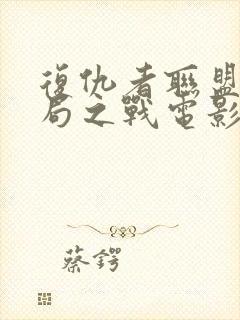 復仇者聯盟
局之戰電影
蔡鍔